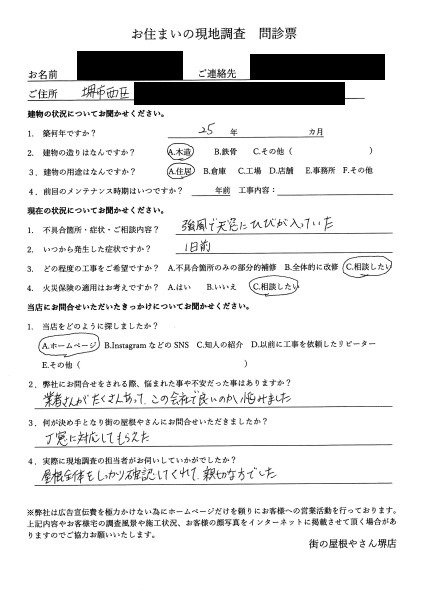 お住まいの現地調査 問診票
お名前 ご連絡先
ご住所 堺市西区
建物の状況についてお聞かせください。
1. 築何年ですか? 25 年 カ月
2. 建物の造りはなんですか? A.木造 B.鉄骨 C.その他( )
3. 建物の用途はなんですか? A.住居 B.倉庫 C.工場 D.店舗 E.事務所 F.その他
4. 前回のメンテナンス時期はいつですか? 年前 工事内容:
現在の状況についてお聞かせください。
1. 不具合箇所・症状・ご相談内容? 強風で天窓にひびが入っていた
2. いつから発生した症状ですか? 1日前
3. どの程度の工事をご希望ですか? A.不具合箇所のみの部分的補修 B.全体的に改修 C.相談したい
4. 火災保険の適用はお考えですか? A.はい B.いいえ C.相談したい
当店にお問合せいただいたきっかけについてお聞かせください。
1. 当店をどのように探しましたか?
A.ホームページ B.Instagram などの SNS C.知人の紹介 D.以前に工事を依頼したリピーター
E.その他( )
2. 弊社にお問合せをされる際、悩まれた事や不安だった事はありますか?
業者さんがたくさんあって、この会社で良いのか悩みました
3. 何が決め手となり街の屋根やさんにお問合せいただきましたか?
丁寧に対応してもらえた
4. 実際に現地調査の担当者がお伺いしていかがでしたか?
屋根全体をしっかり確認してくれて、親切な方でした
※弊社は広告宣伝費を極力かけない為にホームページだけを頼りにお客様への営業活動を行っております。
上記内容やお客様宅の調査風景や施工状況、お客様の顔写真をインターネットに掲載させて頂く場合があ
りますのでご協力お願いいたします。
街の屋根やさん堺店